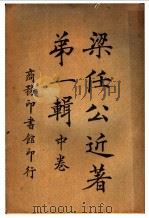 梁任公近著
第一輯 中卷
商務印書館印行